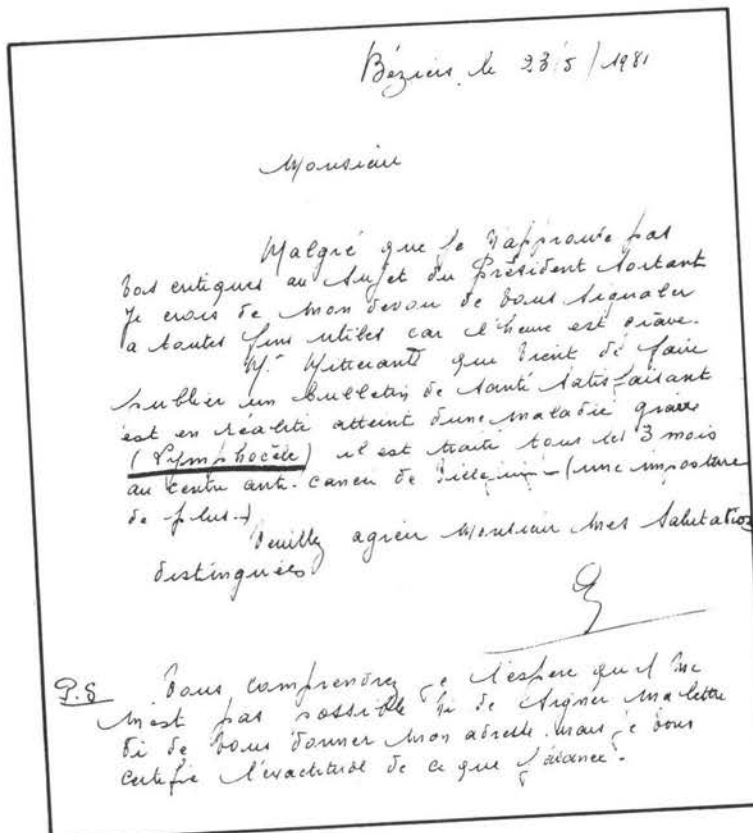 Béziers, le 23/5/1981
Monsieur
Malgré que je n'approuve pas
vos critiques au sujet du Président sortant
Je crois de mon devoir de vous signaler
a toutes fins utiles car l'heure est grave.
Mr Mitterantt que vient de faire
publier un bulletin de santé satisfaisant
est en réalité atteint d'une maladie grave
(Lymphocèle) il est traité tous les 3 mois
au centre anti-cancer de (une imposture
de plus-)
Veuillez agréer Monsieur mes salutations
distinguées
P.S Vous comprendrez je l'espère qu'il ne
m'est pas possible ni de signer ma lettre
ni de vous donner mon adresse. mais je vous
certifie l'exactitude de ce que j'avance.